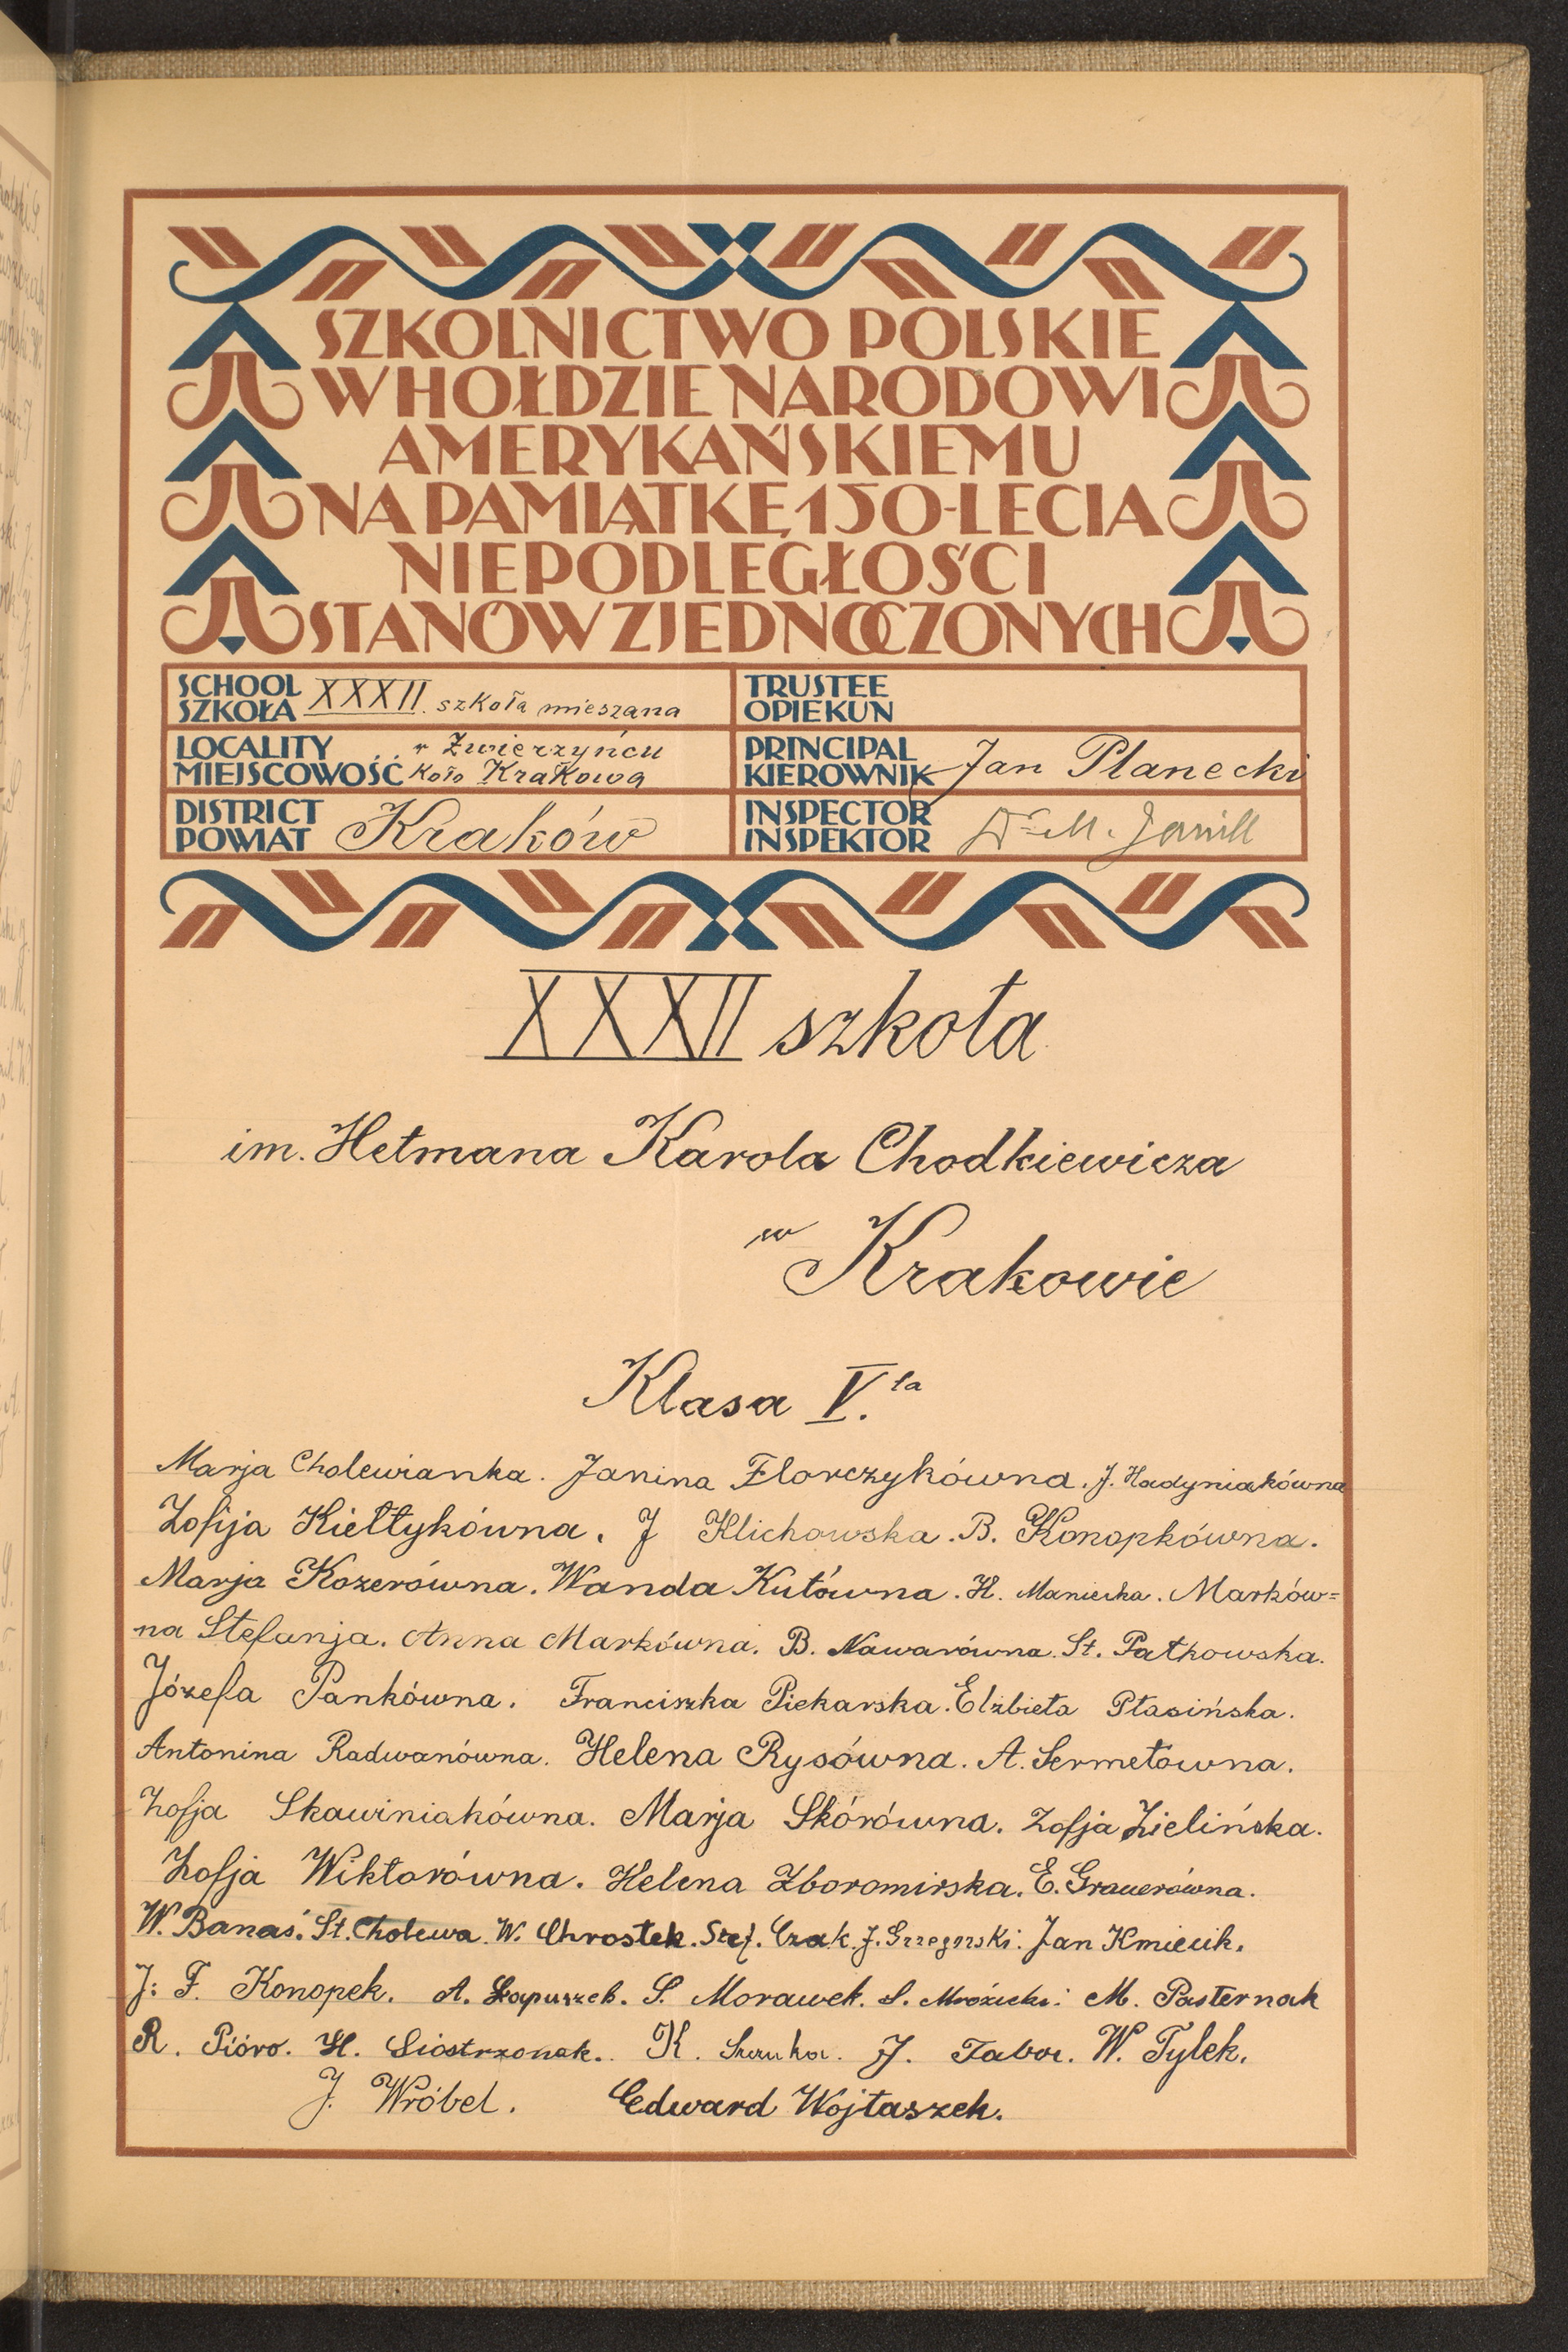 SZKOLNICTWO POLSKIE
W HOŁDZIE NARODOWI
AMERYKAŃSKIEMU
NA PAMIĄTKĘ 150-LECIA
NIEPODLEGŁOŚCI
STANÓW ZJEDNOCZONYCH
SCHOOL
SZKOŁA XXXII. szkoła mieszana
TRUSTEE
OPIEKUN
LOCALITY w Zwierzyńcu
MIEJSCOWOŚĆ koło Krakowa
PRINCIPAL
KIEROWNIK Jan Planecki
DISTRICT
POWIAT Kraków
INSPECTOR
INSPEKTOR Dr M. Janill
XXXII szkoła
im. Hetmana Karola Chodkiewicza
w Krakowie
Klasa V.ta
Marja Cholewianka. Janina Florczykówna. J. Hadyniakówna
Zofija Kiełtykówna. J Klichowska. B. Konopkówna.
Marja Kozerówna. Wanda Kutówna. H. Maniecka. Marków=
na Stefanja. Anna Markówna. B. Nawarówna. St. Patkowska.
Józefa Pankówna. Franciszka Piekarska. Elżbieta Ptasińska.
Antonina Radwanówna. Helena Rysówna. A. Sermetówna.
Zofja Skawiniakówna. Marja Skórówna. Zofja Zielińska.
Zofja Wiktorówna. Helena Zboromirska. E. Grauerówna.
W. Banaś. St. Cholewa. W. Chrostek. Stef. Czak. J. Grzegorski. Jan Kmiecik.
J: F. Konopek. A. Łapuszek. S. Morawek. S. Mrózicki. M. Pasternak
R. Pióro. H. Siostrzonek. K. J. Tabor. W. Tylek.
J. Wróbel. Edward Wojtaszek.